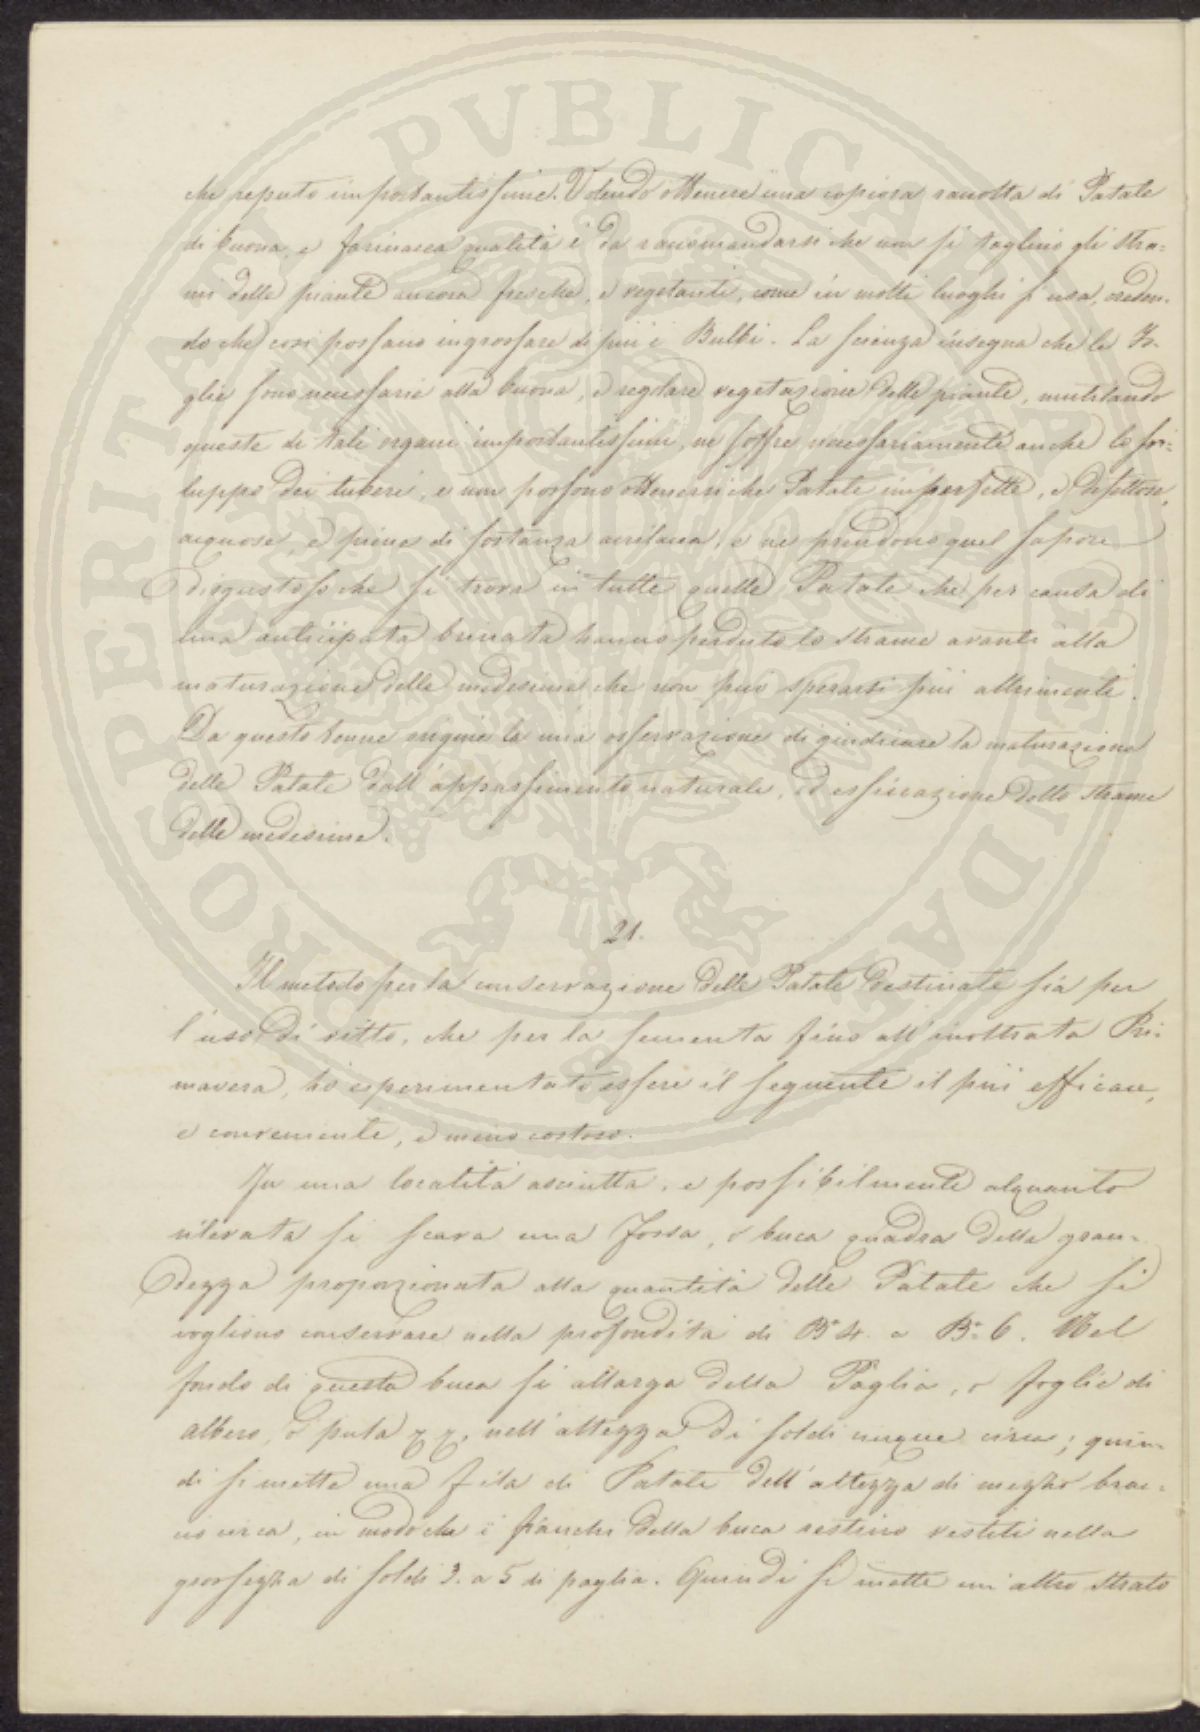 che reputo importantissime. Volendo ottenere una copiosa raccolta di Patate
di buona, e farinacea qualità è da raccomandarsi che non si taglino gli stra-
mi delle piante ancora fresche, e vegetanti, come in molti luoghi si usa, creden-
do che così possano ingrossare di più i Bulbi. La scienza insegna che le Fo-
glie sono necessarie alla buona, e regolare vegetazione delle piante, mutilando
queste di tali organi importantissimi, ne soffre necessariamente anche lo svi-
luppo dei tuberi, e non possono ottenersi che Patate imperfette, e difettose,
acquose, e piene di sostanza, e ne prendono quel sapore
disgustoso che si trova in tutte quelle Patate che per causa di
una anticipata brinata hanno perduto lo strame avanti alla
maturazione delle medesime che non può sperarsi più altrimenti.
Da questo venne la mia osservazione di giudicare la maturazione
delle Patate dall'appassimento naturale, ed essiccazione dello strame
delle medesime.
21.
Il metodo per la conservazione delle Patate destinate sia per
l'uso di vitto, che per la sementa fino all'inoltrata Pri-
mavera, ho esperimentato essere il seguente il più efficace,
e conveniente, e meno costoso.
In una località asciutta, e possibilmente alquanto
rilevata si scava una fossa, o buca quadra della gran-
dezza proporzionata alla quantità delle Patate che si
vogliono conservare nella profondità di B.a 4. a B.a 6. Nel
fondo di questa buca si allarga della Paglia, o foglie di
albero, o pula nell'altezza di soldi cinque circa; quin-
di si mette una fila di Patate dell'altezza di mezzo brac-
cio circa, in modo che i fianchi della buca restino vestiti nella
grossezza di soldi 3. a 5 di paglia. Quindi si mette un altro strato